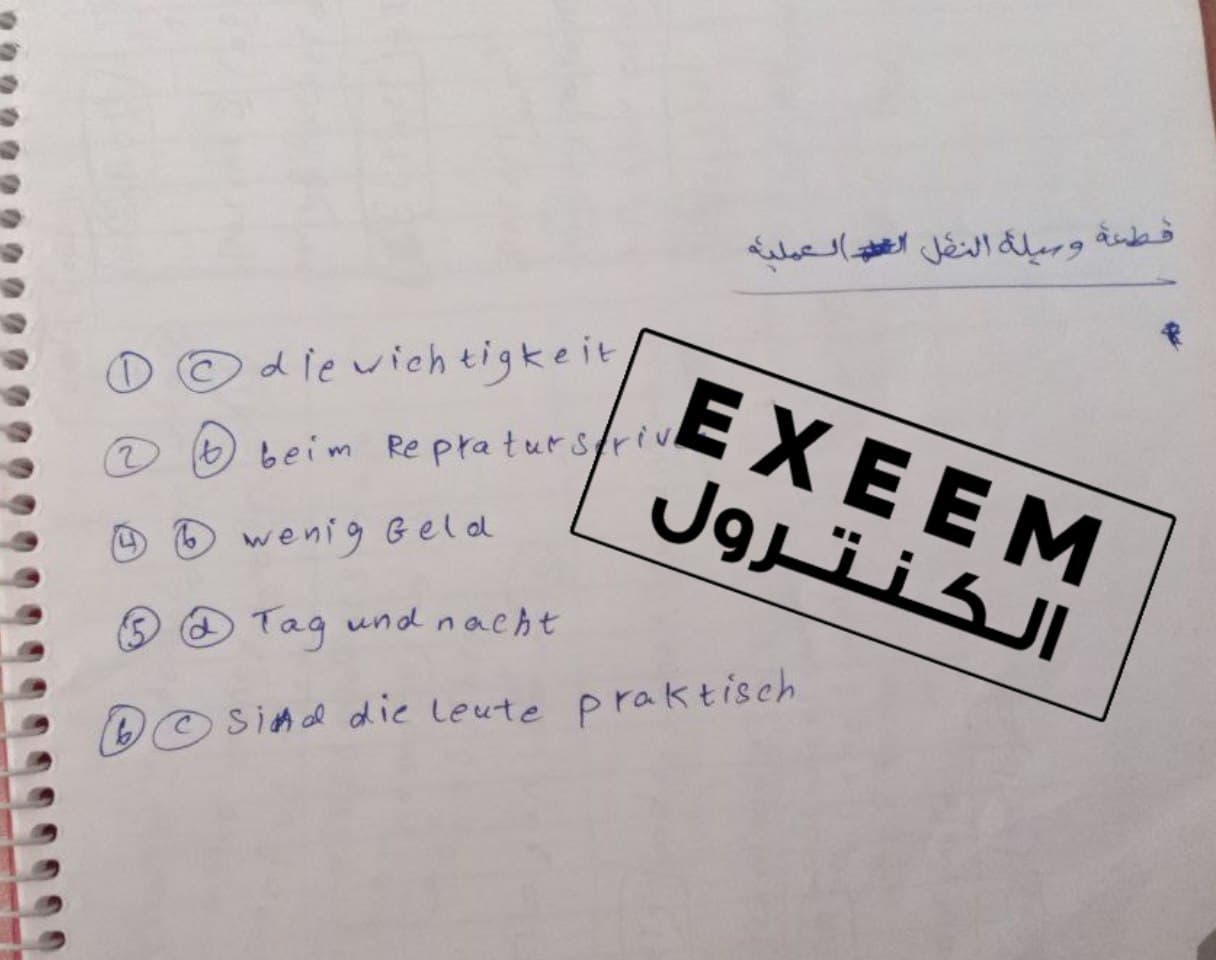 قطعة وسيلة النقل العملية
① ⓒ die wichtigkeit
② ⓑ beim
④ ⓑ wenig Geld
⑤ ⓓ Tag und nacht
⑥ ⓒ Sind die leute praktisch
EXEEM
الكنترول